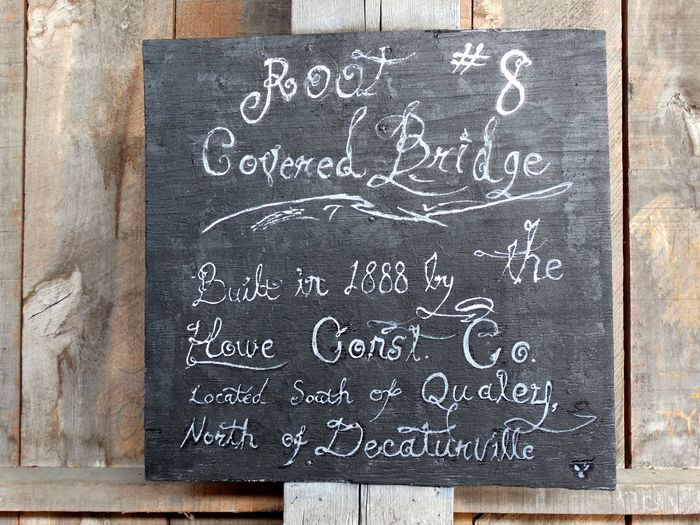 Root #8
Covered Bridge
Built in 1888 by the
Howe Const. Co.
Located South of Qualey,
North of Decaturville